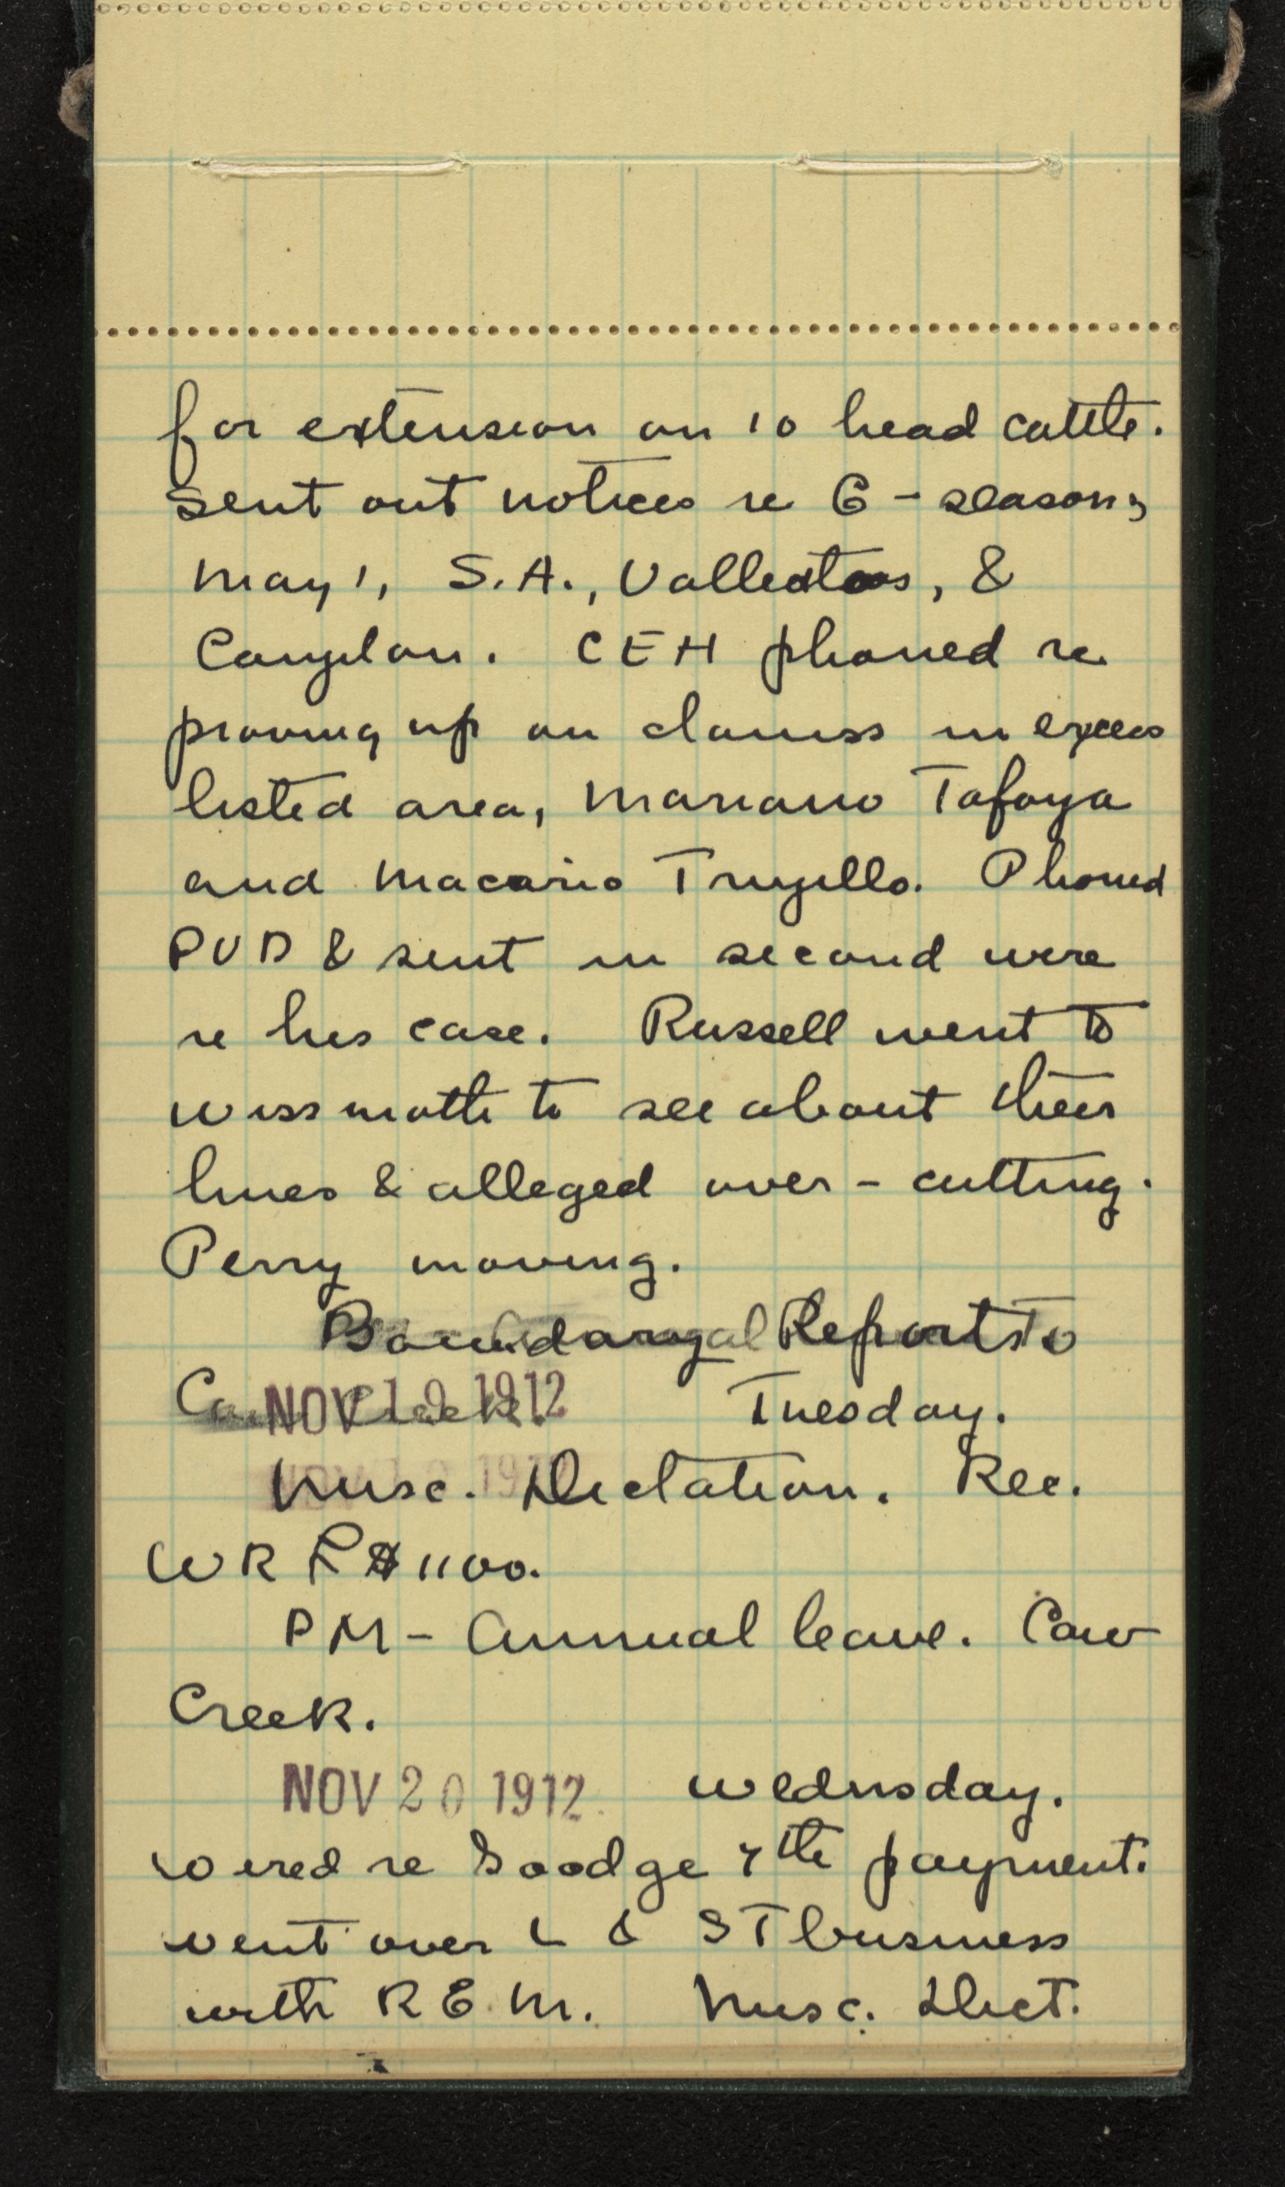 for extension on 10 head cattle.
Sent out notices re G - seasons,
May 1, S.A., Vallecitos, &
Canjelon. CEH phoned re
proving up on claims in excess
listed area, Mariano Tafoya
and Macario Trujillo. Phoned
PVD & sent in second wire
re his case. Russell went to
Wissmath to see about their
lines & alleged over-cutting.
Perry moving.
Boundary Reports
NOV 19 1912 Tuesday.
Misc. Dictation. Rec.
WRR $1100.
PM - Annual leave. Cow
Creek.
NOV 20 1912 Wednsday.
Wired re Goodge 7th payment.
Went over L & ST business
with R.E.M. Misc. Dict.